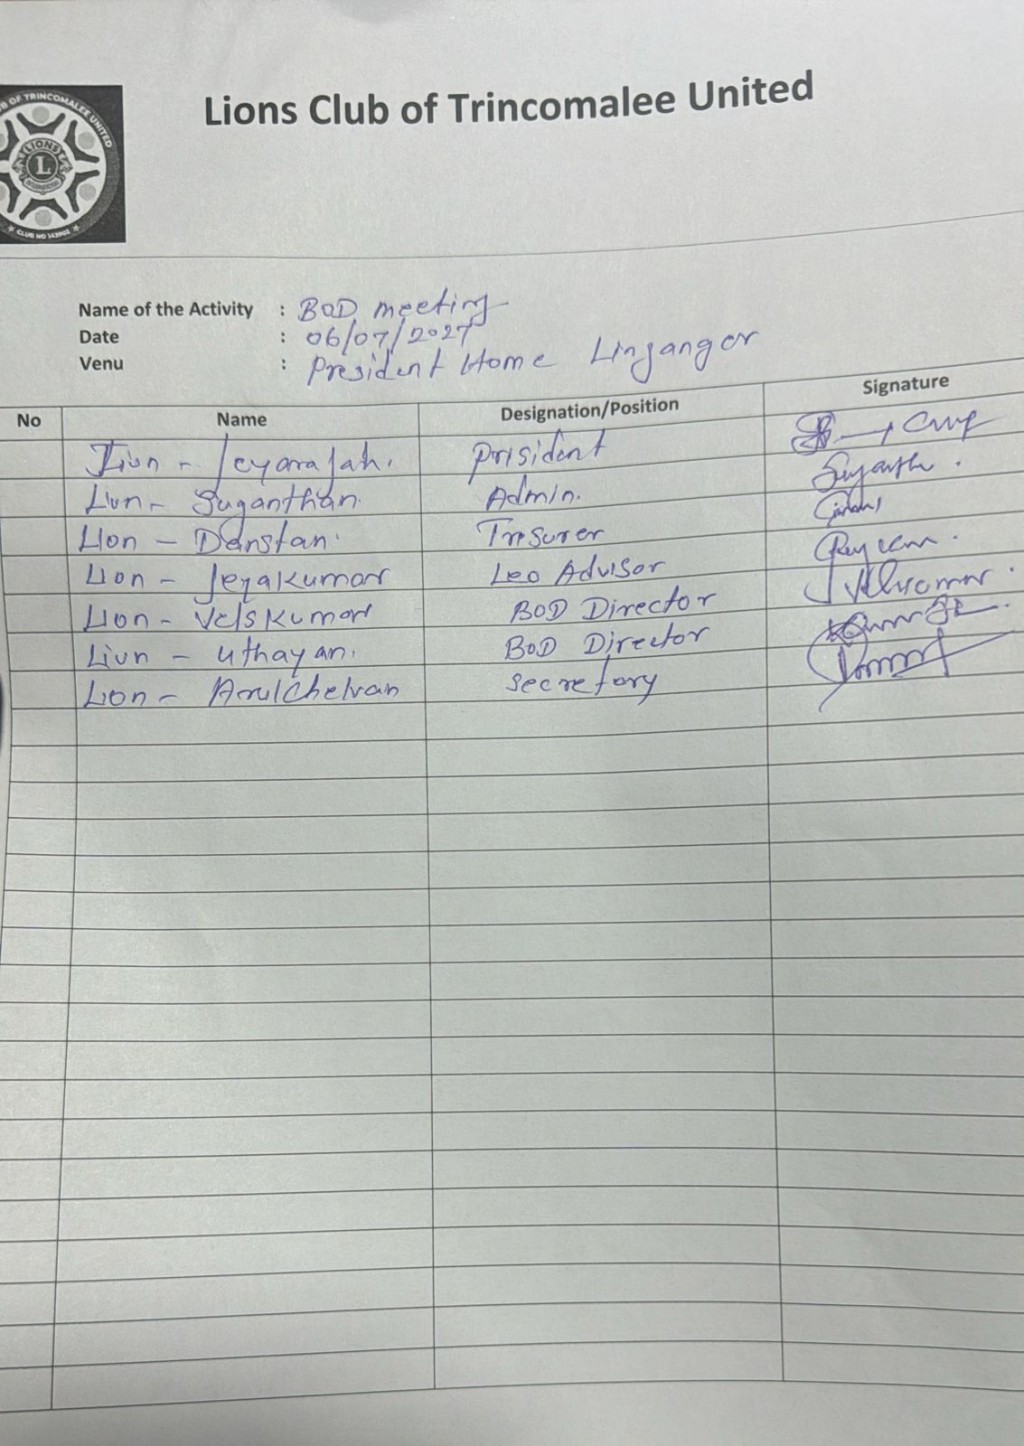 OF TRINCOMALEE UNITED
LIONS
L
CLUB NO
Lions Club of Trincomalee United
Name of the Activity : BOD meeting
Date : 06/07/2027
Venu : President Home Linganagar
No Name Designation/Position Signature
Lion - Jeyarajah. prisident
Lion - Suganthan. Admin.
Lion - Danstan. Tresurer
Lion - Jeyakumar Leo Advisor
Lion - Velskumar BOD Director
Lion - Uthayan. BOD Director
Lion - Arulchelvan secretory